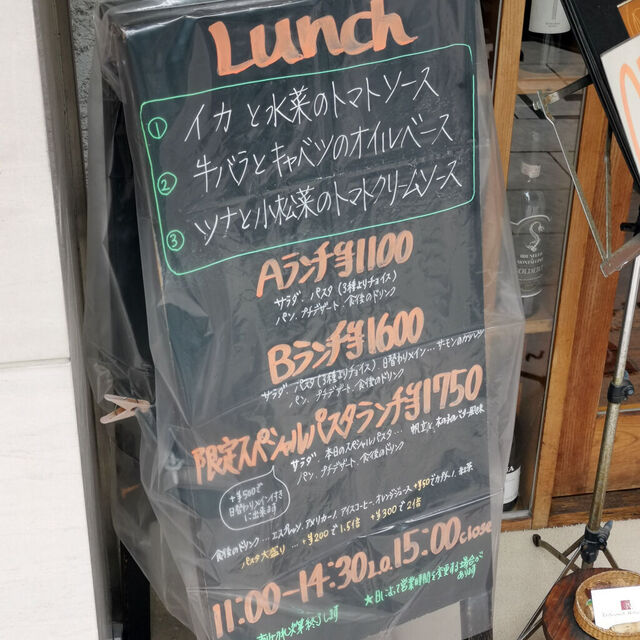 Lunch
① イカと水菜のトマトソース
② 牛バラとキャベツのオイルベース
③ ツナと小松菜のトマトクリームソース
Aランチ ¥1100
サラダ、パスタ(3種よりチョイス)
パン、プチデザート、食後のドリンク
Bランチ ¥1600
サラダ、パスタ(3種よりチョイス) 日替わりメイン…サーモンの
パン、プチデザート、食後のドリンク
限定スペシャルパスタランチ ¥1750
サラダ 本日のスペシャルパスタ…
パン、プチデザート、食後のドリンク
+¥500で
日替わりメイン付きに
出来ます
食後のドリンク…エスプレッソ、アメリカーノ、アイスコーヒー、オレンジジュース +¥50でカプチーノ、紅茶
パスタ大盛り…+¥200で1.5倍 +¥300で2倍
11:00-14:30 L.O. 15:00 close
★日によって営業時間を変更する場合が
あります